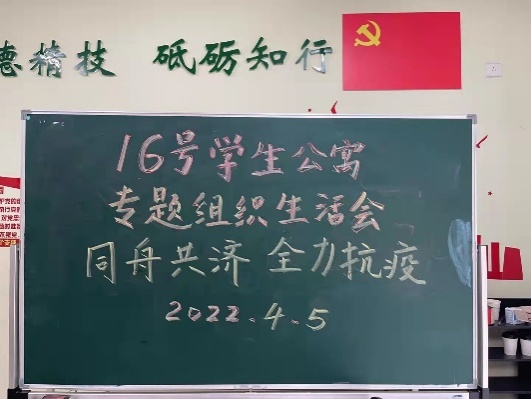 德精技 砥砺知行
16号学生公寓
专题组织生活会
同舟共济 全力抗疫
2022.4.5